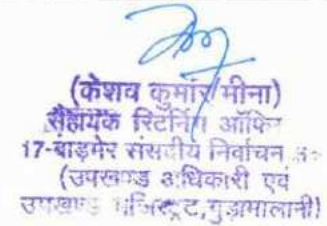 (केशव कुमार मीना)
सहायक रिटर्निंग ऑफि
17-बाड़मेर संसदीय निर्वाचन
(उपखण्ड अधिकारी एवं
उपखण्ड मजिस्ट्रेट,गुड़ामालानी)